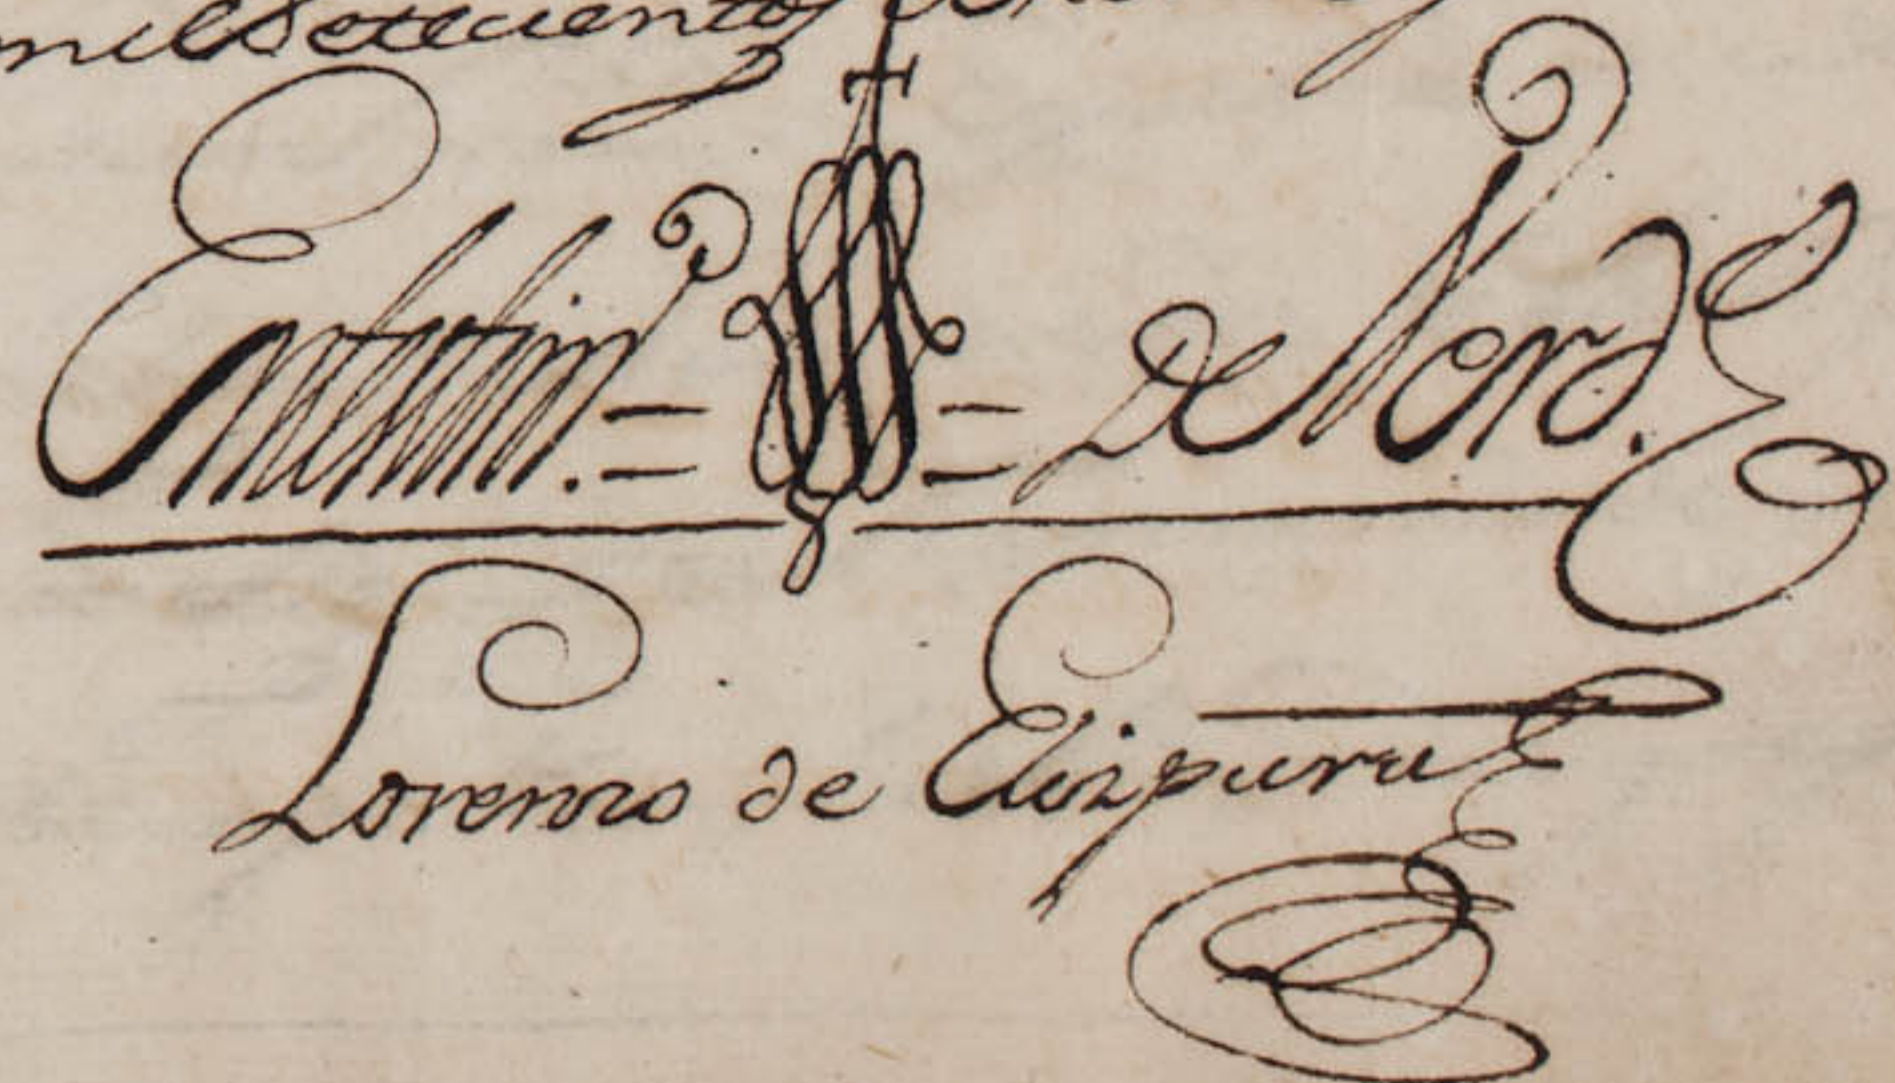 mil Setecientos
En testim.º = = de Verd.
Lorenzo de Elizpuru